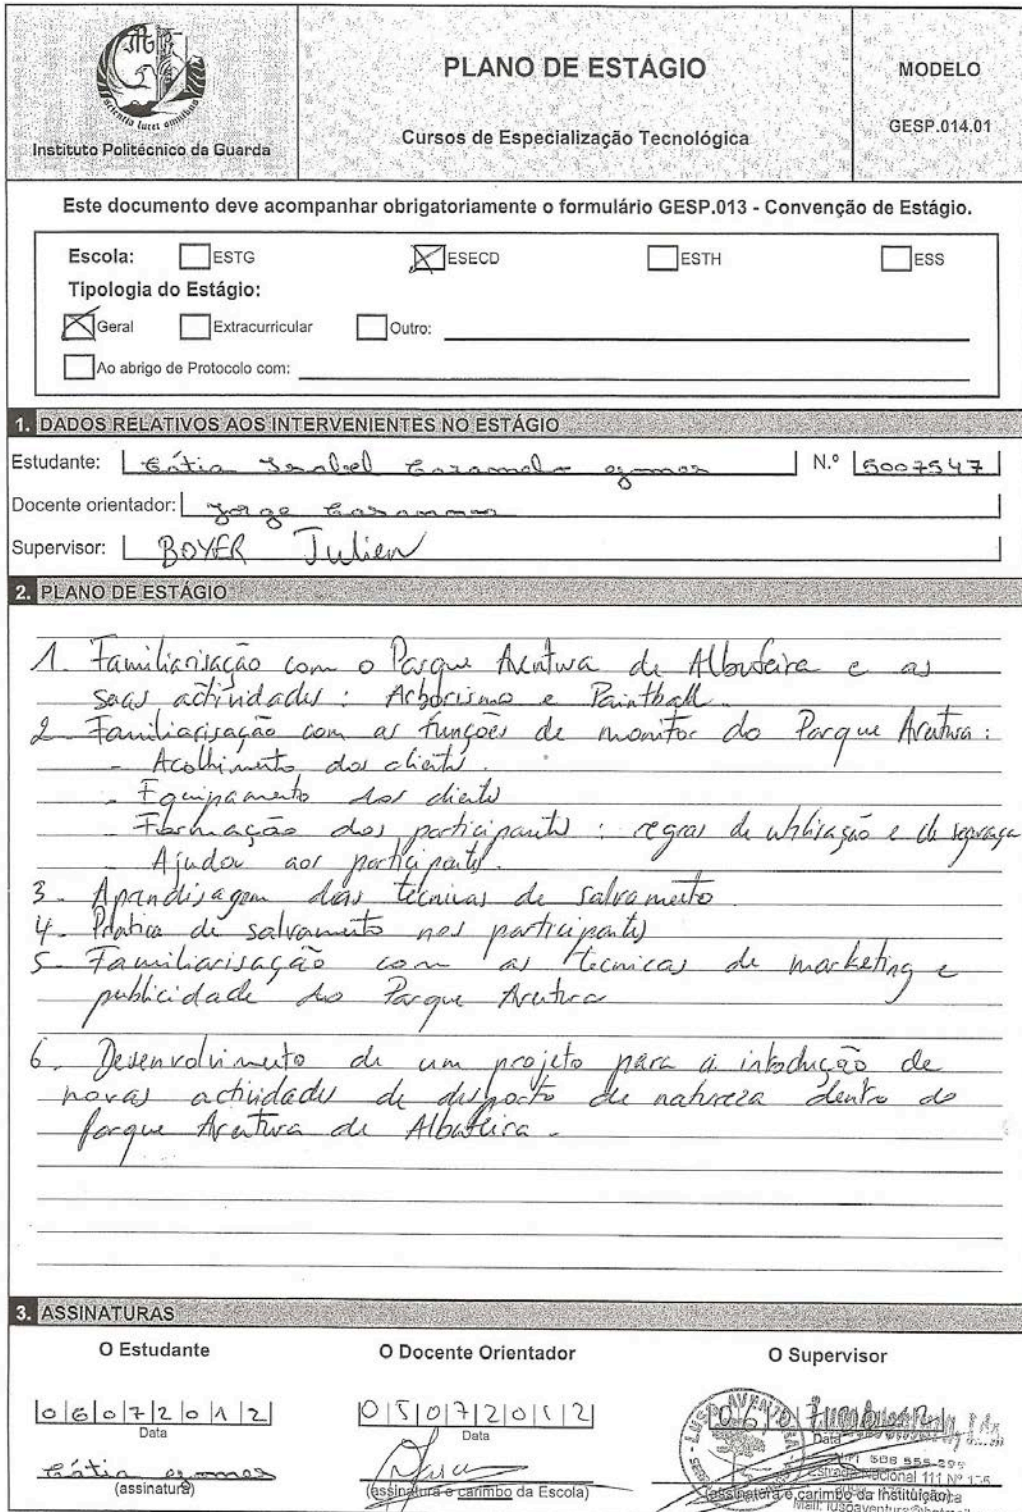 scientia lucet omnibus
Instituto Politécnico da Guarda
PLANO DE ESTÁGIO
Cursos de Especialização Tecnológica
MODELO
GESP.014.01
Este documento deve acompanhar obrigatoriamente o formulário GESP.013 - Convenção de Estágio.
Escola: ESTG ESECD ESTH ESS
Tipologia do Estágio:
Geral Extracurricular Outro:
Ao abrigo de Protocolo com:
1. DADOS RELATIVOS AOS INTERVENIENTES NO ESTÁGIO
Estudante: Cátia Isabel Caramelo Gomes N.º 5007547
Docente orientador: Jorge
Supervisor: BOYER Julien
2. PLANO DE ESTÁGIO
1. Familiarisação com o Parque Aventura de Albufeira e as
suas actividades : Arborismo e Paintball.
2. Familiarisação com as funções de monitor do Parque Aventura :
- Acolhimento dos clientes.
- Equipamento dos clientes
- Formação dos participantes : regras de utilisação e de segurança
- Ajudar aos participantes.
3. Aprendisagem das técnicas de salvamento
4. Pratica de salvamento nos participantes
5. Familiarisação com as tecnicas de marketing e
publicidade do Parque Aventura
6. Desenvolvimento de um projeto para a introdução de
novas actividades de desporto de natureza dentro do
parque Aventura de Albufeira.
3. ASSINATURAS
O Estudante O Docente Orientador O Supervisor
06072012 05072012 06/0
Data Data Data
Cátia Gomes
(assinatura) (assinatura e carimbo da Escola) (assinatura e carimbo da Instituição)
LUSO AVENTURA
Estrada Nacional 111 Nº